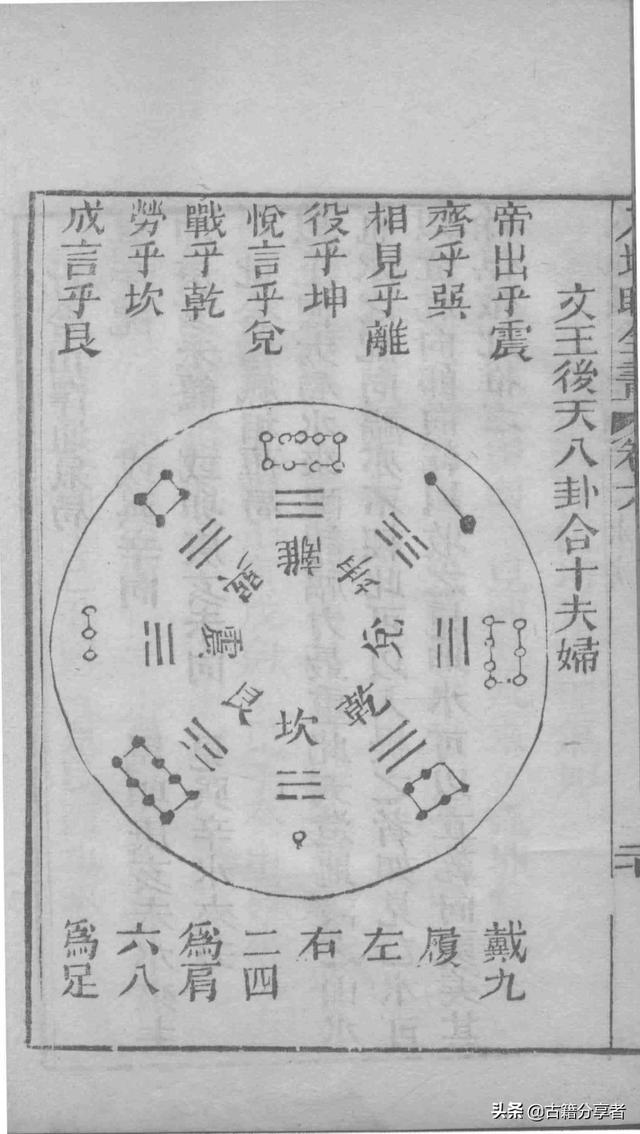 文王後天八卦合十夫婦
帝出乎震
齊乎巽
相見乎離
役乎坤
悅言乎兌
戰乎乾
勞乎坎
成言乎艮
離
坤
兌
乾
坎
艮
震
巽
戴九
履
左
右
二四
爲肩
六八
爲足
头条 @古籍分享者